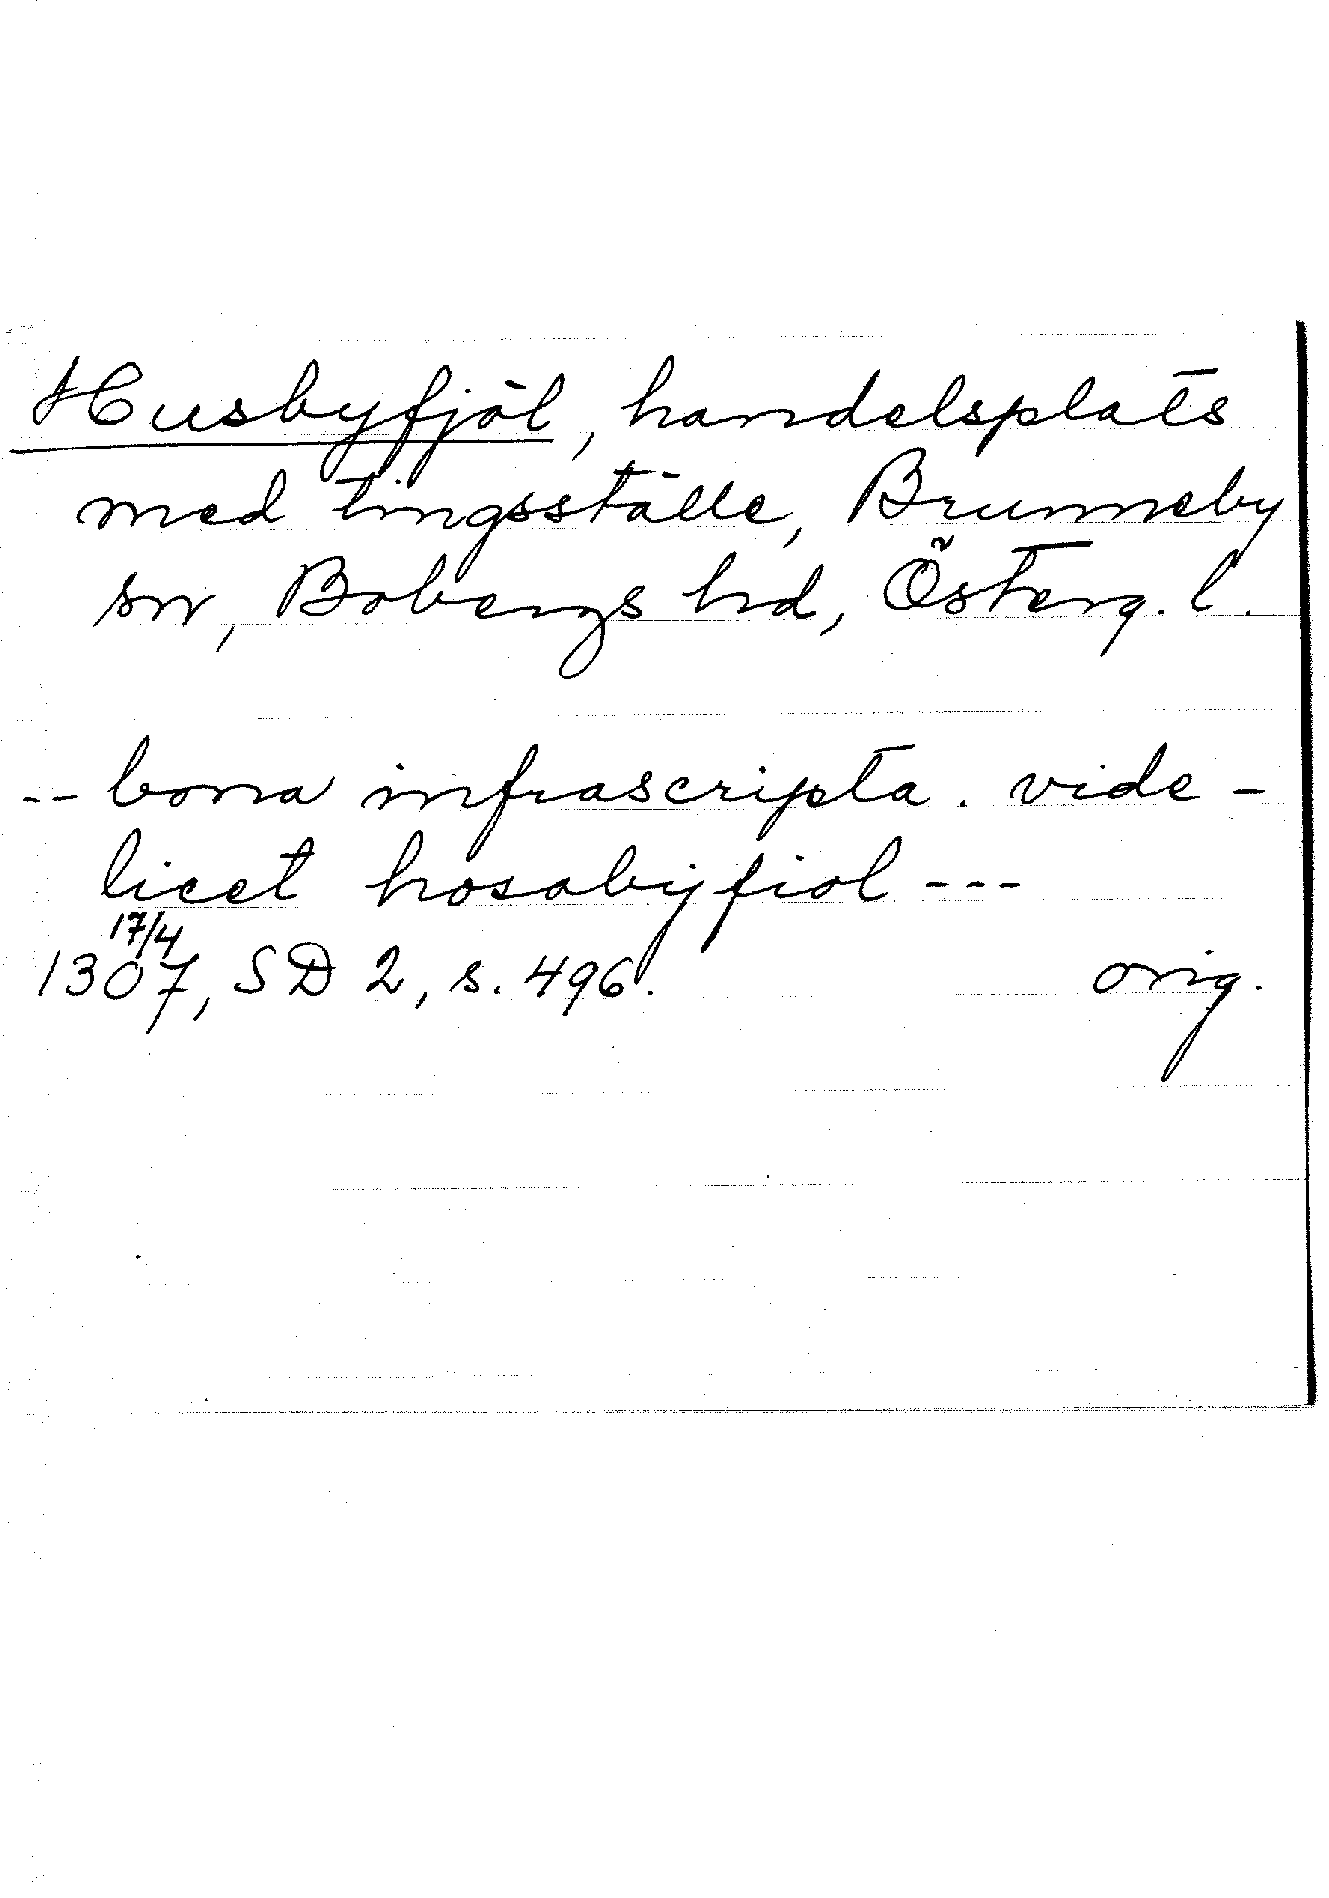 Husbyfjöl, handelsplats
med tingsställe, Brunneby
sn, Bobergs hd, Österg. l.
-- bona infrascripta. vide-
licet hosabyfiol ---
17/4
1307, SD 2, s. 496. orig.